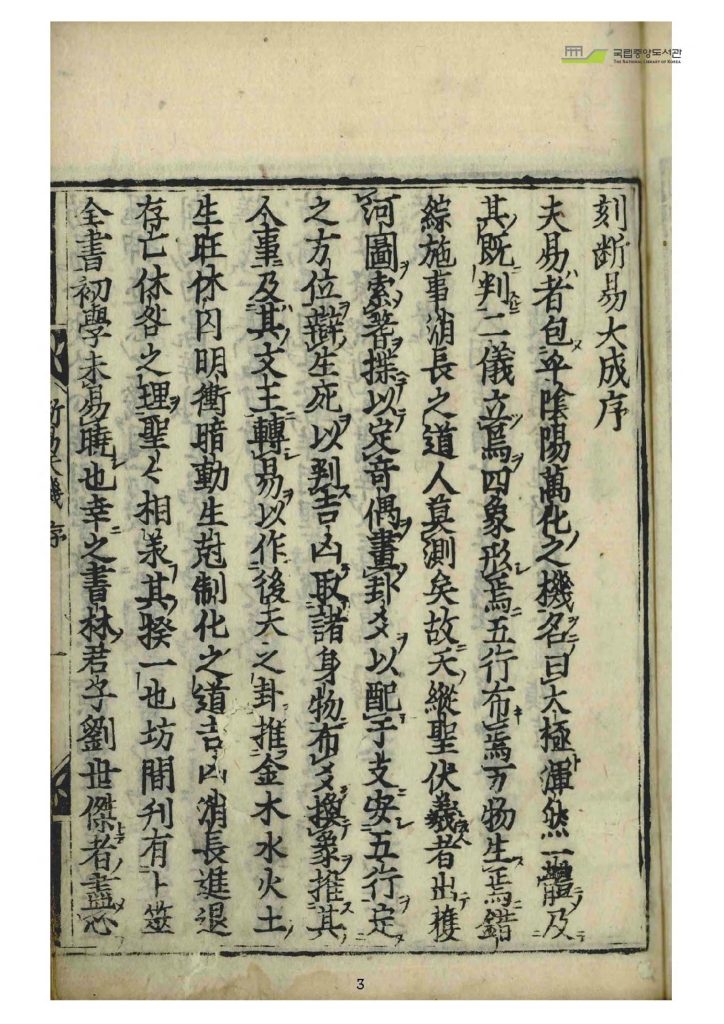 국립중앙도서관
THE NATIONAL LIBRARY OF KOREA
刻断易大成序
夫易者包乎陰陽萬化之機名曰太極渾然一體及
其既判二儀立焉四象形焉五行布焉万物生焉錯
綜施事消長之道人莫測矣故天縱聖伏羲者出獲
河圖索蓍揲以定竒偶畫卦爻以配干支安五行定
之方位辯生死以判吉凶取諸身物布爻換象推其
人事及其文王轉易以作後天之卦推金木水火土
生旺休囚明衝暗動生尅制化之道吉凶消長進退
存亡休咎之理聖〻相羕其揆一也坊間刋有卜筮
全書初學未易曉也幸之書林君子劉世傑者盡心
断易天機 序
一
3